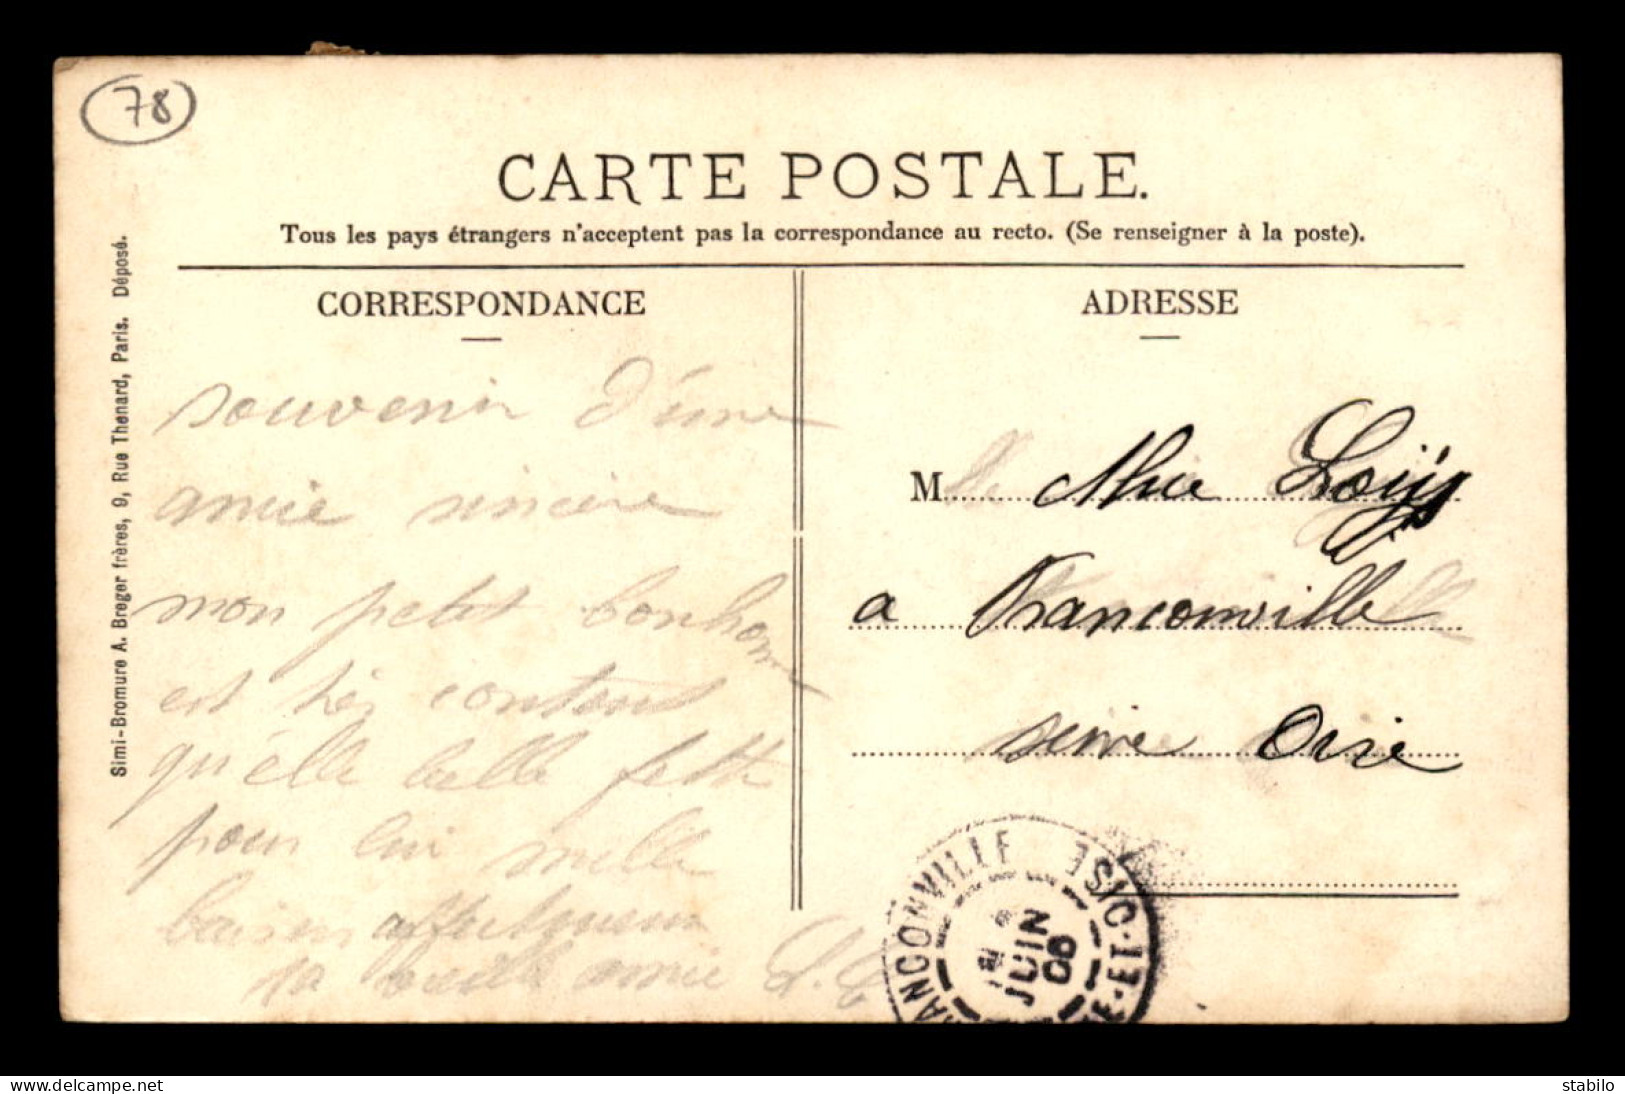 78
CARTE POSTALE.
Tous les pays étrangers n'acceptent pas la correspondance au recto. (Se renseigner à la poste).
CORRESPONDANCE
souvenir d'une
amie sincère
mon petit bonhom
est très contens
qu'elle belle fette
pour lui mille
baisers
ta vieille amie
ADRESSE
M Loÿs
a Franconville
seine Oise
FRANCONVILLE SEINE-ET-OISE
JUIN
06
Simi-Bromure A. Breger frères, 9, Rue Thenard, Paris. Déposé.
delcampe.net
stabilo